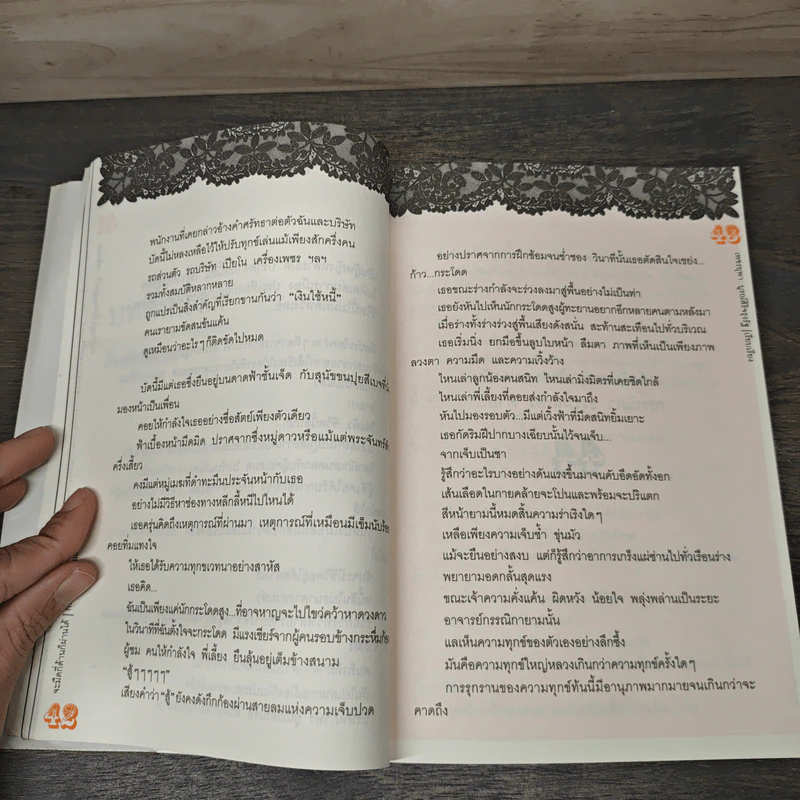 พนักงานที่เคยกล่าวอ้างคำศรัทธาต่อตัวฉันและบริษัท
บัดนี้ไม่หลงเหลือไว้ให้ปรับทุกข์เล่นแม้เพียงสักครึ่งคน
รถส่วนตัว รถบริษัท เปียโน เครื่องเพชร ฯลฯ
รวมทั้งสมบัติหลากหลาย
ถูกแปรเป็นสิ่งสำคัญที่เรียกขานกันว่า "เงินใช้หนี้"
คนเรายามขัดสนข้นแค้น
ดูเหมือนว่าอะไรๆ ก็ติดขัดไปหมด
บัดนี้มีแต่เธอซึ่งยืนอยู่บนดาดฟ้าชั้นเจ็ด กับสุนัขขนปุยสีเบจที่
มองหน้าเป็นเพื่อน
คอยให้กำลังใจเธออย่างซื่อสัตย์เพียงตัวเดียว
ฟ้าเบื้องหน้ามืดมิด ปราศจากซึ่งหมู่ดาวหรือแม้แต่พระจันทร์
ครึ่งเสี้ยว
คงมีแต่หมู่เมฆที่ดำทะมึนประจันหน้ากับเธอ
อย่างไม่มีวิธีหาช่องทางหลีกลี้หนีไปไหนได้
เธอครุ่นคิดถึงเหตุการณ์ที่ผ่านมา เหตุการณ์ที่เหมือนมีเข็มนับร้อย
คอยทิ่มแทงใจ
ให้เธอได้รับความทุกขเวทนาอย่างสาหัส
เธอคิด...
ฉันเป็นเพียงแค่นักกระโดดสูง...ที่อาจหาญจะไปไขว่คว้าหาดวงดาว
ในวินาทีที่ฉันตั้งใจจะกระโดด มีแรงเชียร์จากผู้คนรอบข้างกระหึ่มก้อง
ผู้ชม คนให้กำลังใจ พี่เลี้ยง ยืนลุ้นอยู่เต็มข้างสนาม
"สู้ๆๆๆๆๆ"
เสียงคำว่า "สู้" ยังคงดังกึกก้องผ่านสายลมแห่งความเจ็บปวด
จะมีดกี่ด้านก็ผ่านได้
42
43
อย่างปราศจากการฝึกซ้อมจนช่ำชอง วินาทีนั้นเธอตัดสินใจเขย่ง...
ก้าว...กระโดด
เธอขณะร่างกำลังจะร่วงลงมาสู่พื้นอย่างไม่เป็นท่า
เธอยังหันไปเห็นนักกระโดดสูงผู้ทะยานอยากอีกหลายคนตามหลังมา
เมื่อร่างทั้งร่างร่วงสู่พื้นเสียงดังสนั่น สะท้านสะเทือนไปทั่วบริเวณ
เธอเริ่มนิ่ง ยกมือขึ้นลูบใบหน้า ลืมตา ภาพที่เห็นเป็นเพียงภาพ
ลวงตา ความมืด และความเวิ้งว้าง
ไหนเล่าลูกน้องคนสนิท ไหนเล่ามิ่งมิตรที่เคยชิดใกล้
ไหนเล่าพี่เลี้ยงที่คอยส่งกำลังใจมาถึง
หันไปมองรอบตัว...มีแต่เวิ้งฟ้าที่มืดสนิทยิ้มเยาะ
เธอกัดริมฝีปากบางเฉียบนั้นไว้จนเจ็บ...
จากเจ็บเป็นชา
รู้สึกว่าอะไรบางอย่างดันแรงขึ้นมาจนคับอึดอัดทั้งอก
เส้นเลือดในกายคล้ายจะโปนและพร้อมจะปริแตก
สีหน้ายามนี้หมดสิ้นความร่าเริงใดๆ
เหลือเพียงความเจ็บช้ำ ขุ่นมัว
แม้จะยืนอย่างสงบ แต่ก็รู้สึกว่าอาการเกร็งแผ่ซ่านไปทั่วเรือนร่าง
พยายามอดกลั้นสุดแรง
ขณะเจ้าความคั่งแค้น ผิดหวัง น้อยใจ พลุ่งพล่านเป็นระยะ
อาจารย์กรรณิกายามนั้น
แลเห็นความทุกข์ของตัวเองอย่างลึกซึ้ง
มันคือความทุกข์ใหญ่หลวงเกินกว่าความทุกข์ครั้งใดๆ
การรุกรานของความทุกข์ท้นนี้มีอานุภาพมากมายจนเกินกว่าจะ
คาดถึง